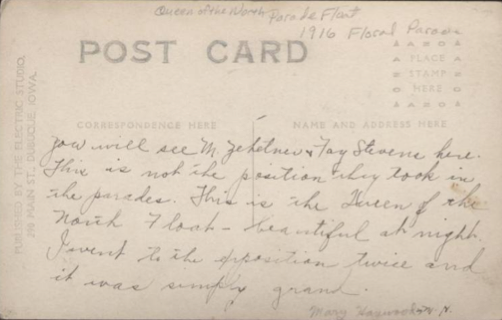 Queen of the North Parade Float
1916 Floral Parade
POST CARD
AZO
PLACE
STAMP
HERE
AZO
CORRESPONDENCE HERE
NAME AND ADDRESS HERE
PUBLISHED BY THE ELECTRIC STUDIO,
MAIN ST., DUBUQUE, IOWA.
you will see M. Zehetner & Fay Stevens here.
This is not the position they took in
the parades. This is the Queen of the
North Float - beautiful at night.
I went to the opposition twice and
it was simply grand.
Mary